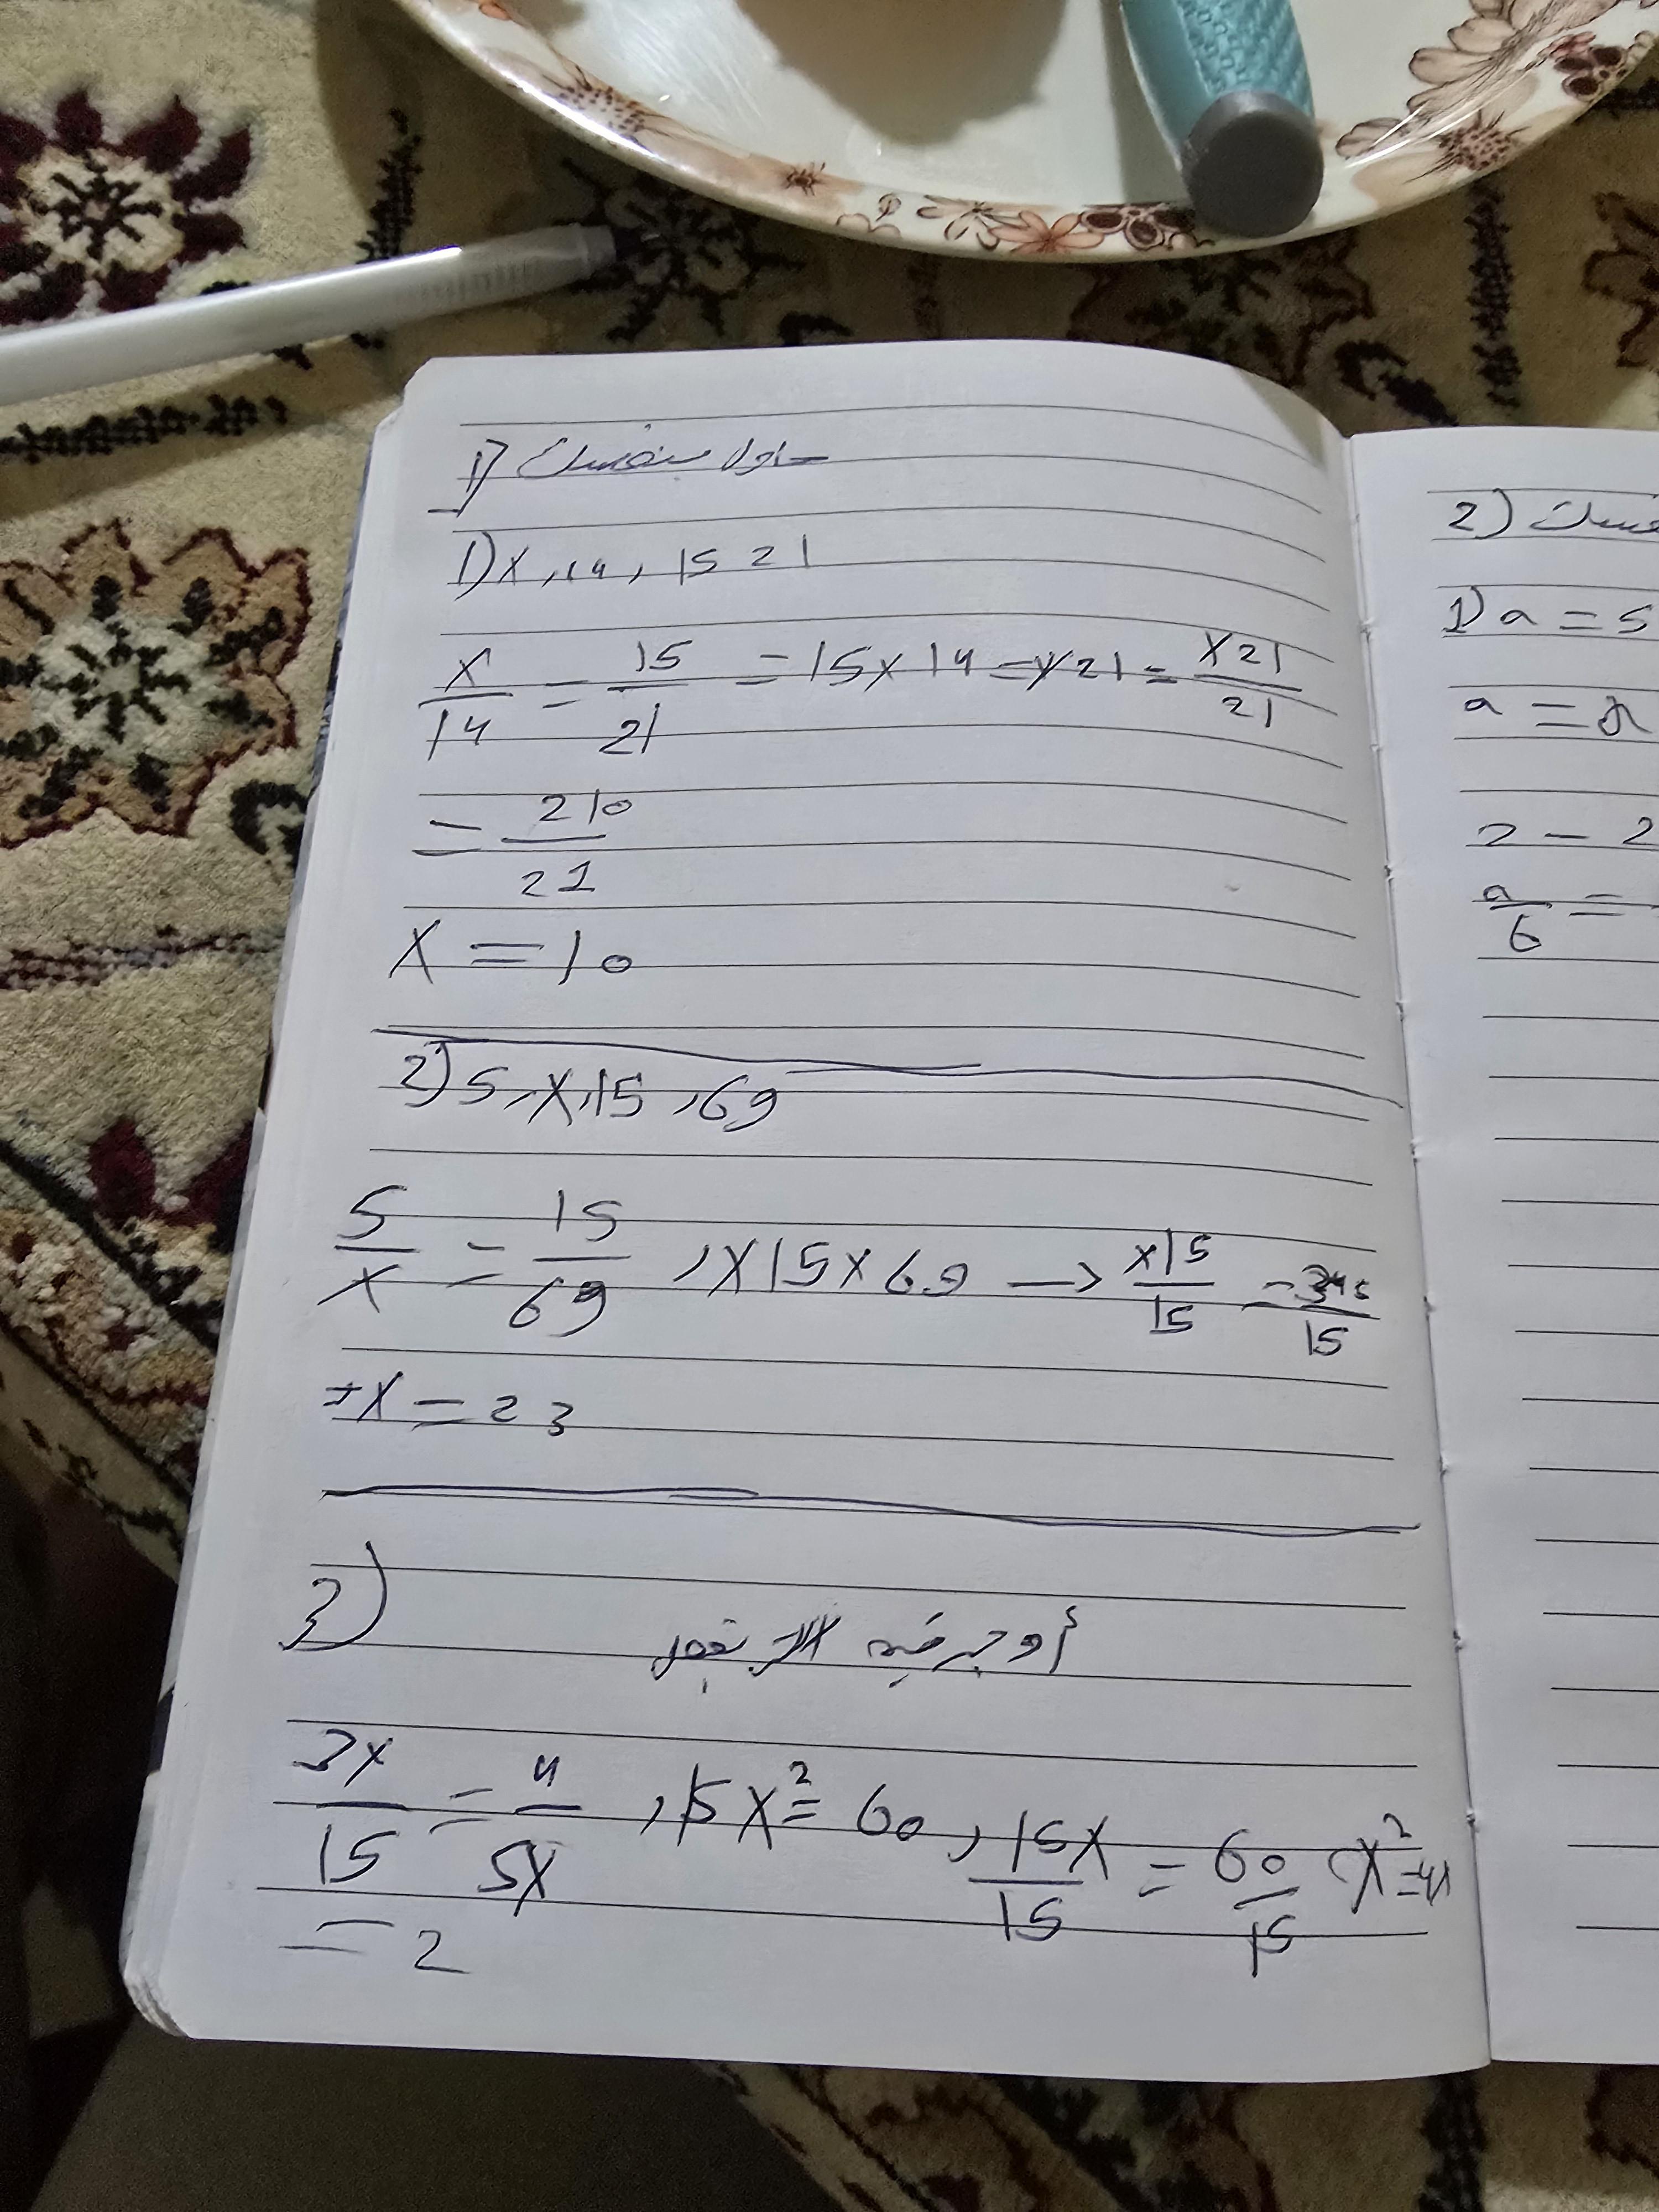 1) حاول بنفسك
1) x, 14, 15 21
x/14 = 15/21 = 15x14 = x21 = x21/21
= 210/21
x = 10
2) 5, x, 15, 69
5/x = 15/69 , x15x69 → x15/15 = 345/15
= x = 23
3)
أوجد قيمة
3x/15 = 4/5x , 15x² = 60 , 15x/15 = 60/15
= 2
2)
1) a = 5
a =
2 - 2
a/6 =